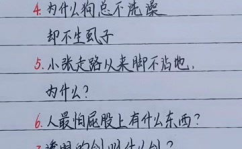 4. 为什么狗总不洗澡
却不生虱子
5. 小张走路从来脚不沾地.
为什么?
6. 人最怕屁股上有什么东西?